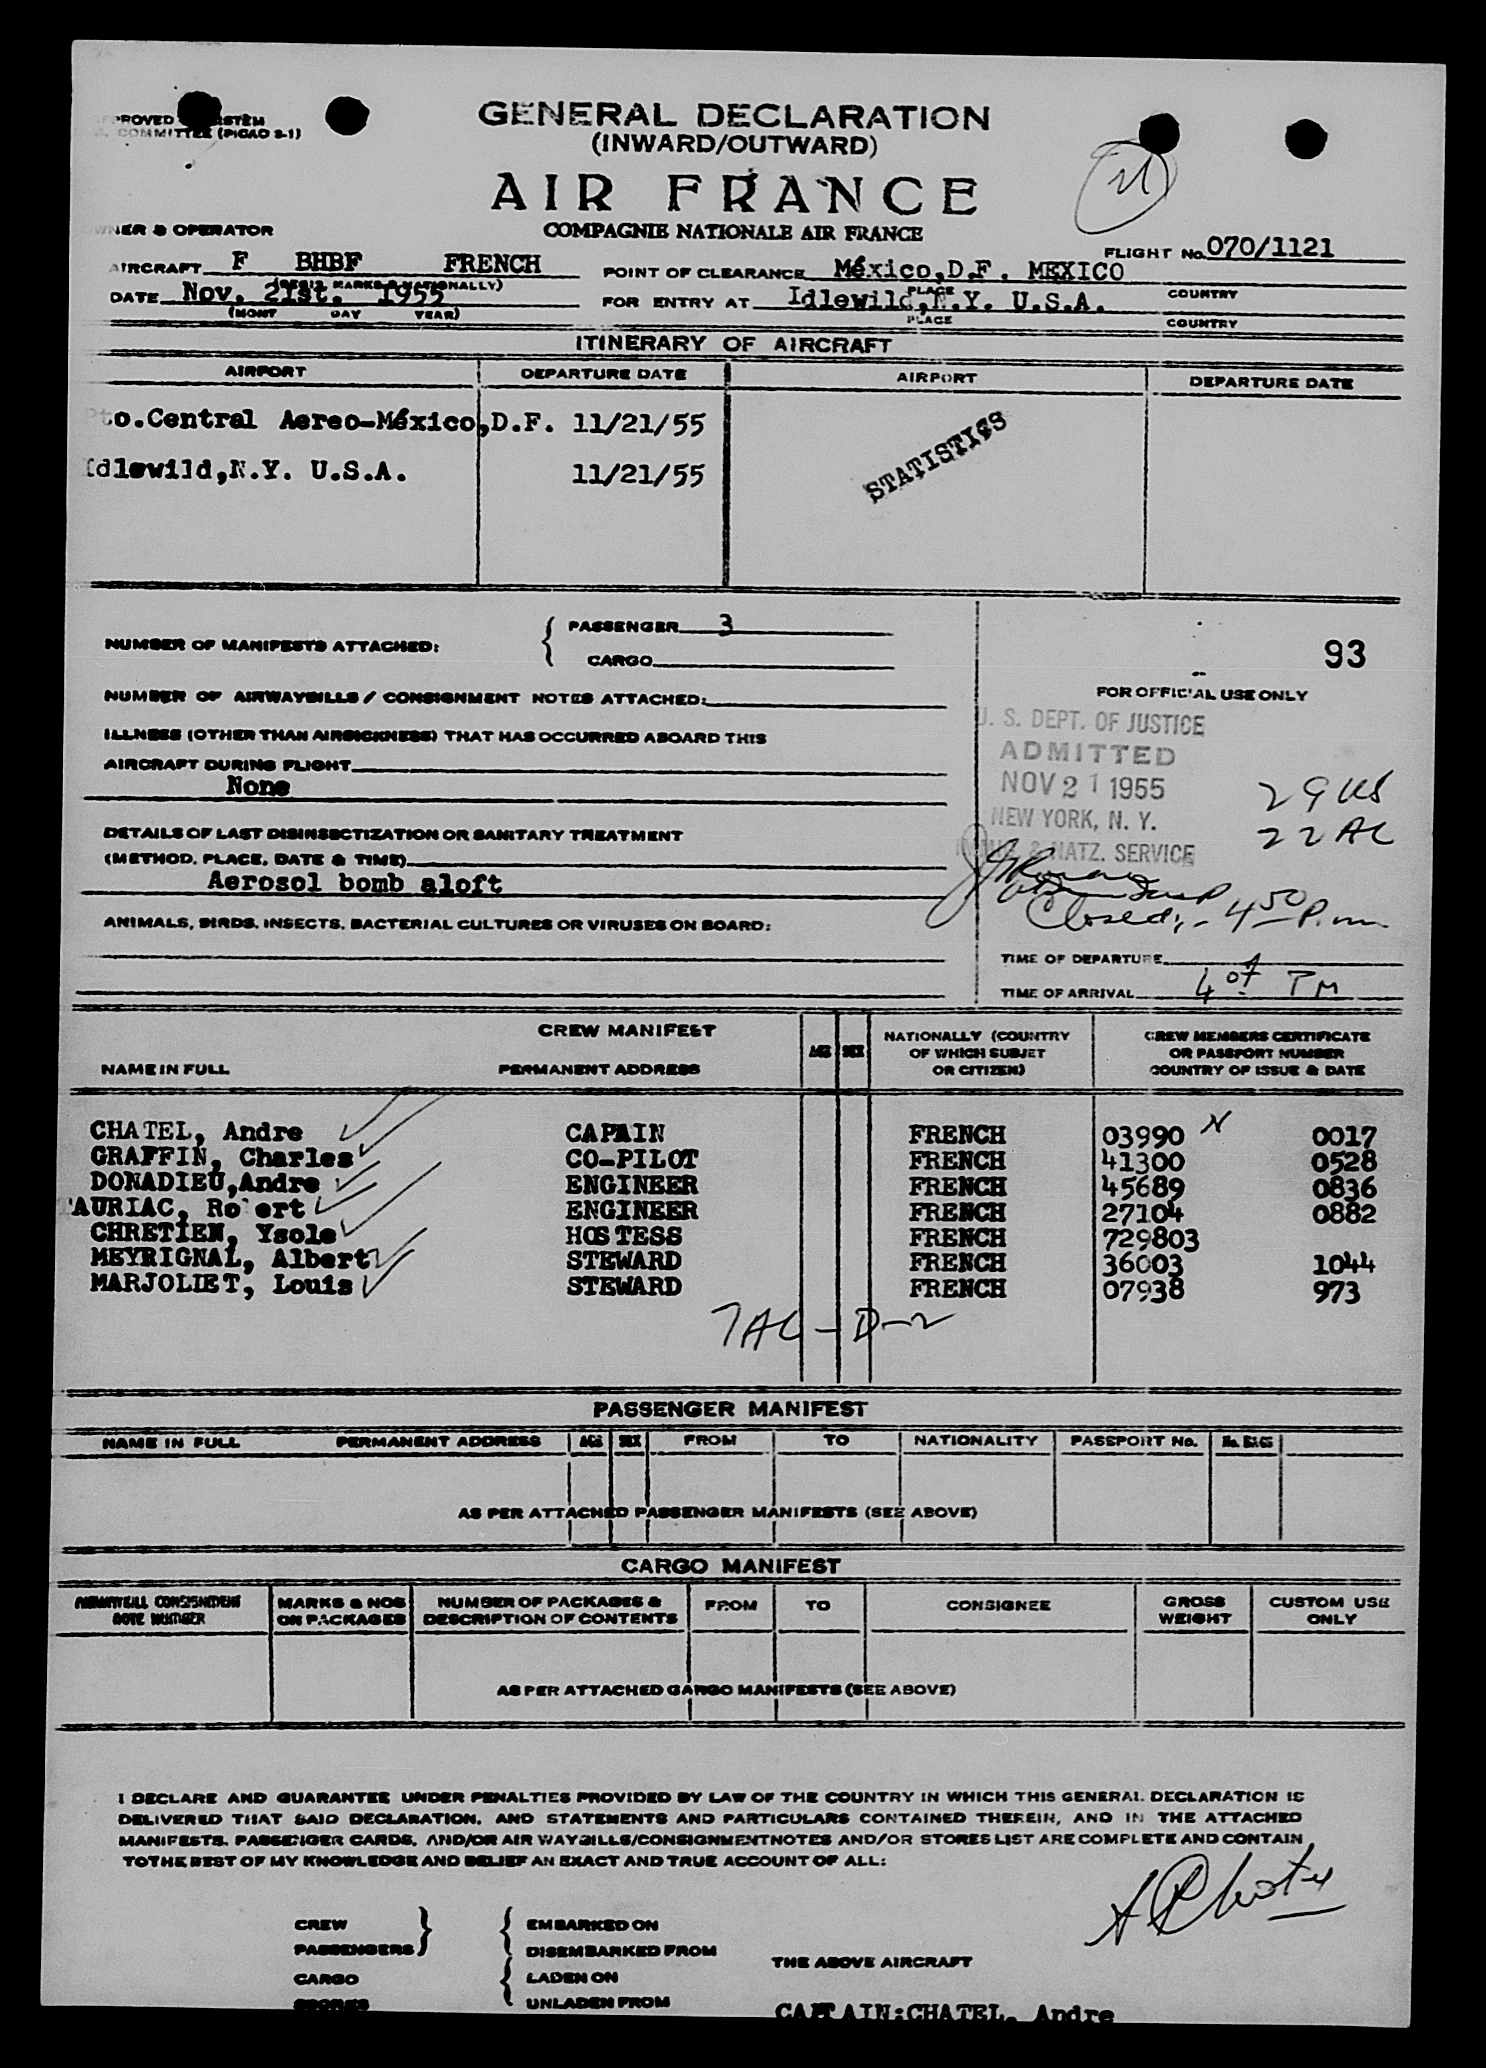 GENERAL DECLARATION
(INWARD/OUTWARD)
COMMITTEE (PICAO 2-1)
AIR FRANCE
21
OPERATOR
COMPAGNIE NATIONALE AIR FRANCE
FLIGHT No. 070/1121
AIRCRAFT F BHBF FRENCH
POINT OF CLEARANCE México, D.F. MEXICO
PLACE COUNTRY
DATE Nov. 21st. 1955
(MONT DAY YEAR)
FOR ENTRY AT Idlewild, N.Y. U.S.A.
PLACE COUNTRY
ITINERARY OF AIRCRAFT
AIRPORT DEPARTURE DATE AIRPORT DEPARTURE DATE
Pto.Central Aereo-México,D.F. 11/21/55
STATISTICS
Idlewild,N.Y. U.S.A. 11/21/55
NUMBER OF MANIFESTS ATTACHED:
PASSENGER 3
CARGO
93
NUMBER OF AIRWAYBILLS / CONSIGNMENT NOTES ATTACHED:
FOR OFFICIAL USE ONLY
ILLNESS (OTHER THAN AIRSICKNESS) THAT HAS OCCURRED ABOARD THIS
AIRCRAFT DURING FLIGHT
None
U. S. DEPT. OF JUSTICE
ADMITTED
NOV 21 1955
NEW YORK, N. Y.
& NATZ. SERVICE
29 US
22 AC
DETAILS OF LAST DISINSECTIZATION OR SANITARY TREATMENT
(METHOD, PLACE, DATE & TIME)
Aerosol bomb aloft
Closed:- 4 50 P.m.
ANIMALS, BIRDS, INSECTS, BACTERIAL CULTURES OR VIRUSES ON BOARD:
TIME OF DEPARTURE
TIME OF ARRIVAL 4 07 PM
CREW MANIFEST
NAME IN FULL PERMANENT ADDRESS AGE SEX
NATIONALLY (COUNTRY
OF WHICH SUBJET
OR CITIZEN)
CREW MEMBERS CERTIFICATE
OR PASSPORT NUMBER
COUNTRY OF ISSUE & DATE
CHATEL, Andre CAPAIN FRENCH 03990 0017
GRAFFIN, Charles CO-PILOT FRENCH 41300 0528
DONADIEU,Andre ENGINEER FRENCH 45689 0836
TAURIAC, Ro ert ENGINEER FRENCH 27104 0882
CHRETIEN, Ysole HOSTESS FRENCH 729803
MEYRIGNAL, Albert STEWARD FRENCH 36003 1044
MARJOLIET, Louis STEWARD FRENCH 07938 973
7AC-D-2
PASSENGER MANIFEST
NAME IN FULL PERMANENT ADDRESS AGE SEX FROM TO NATIONALITY PASSPORT No. No. BAGS
AS PER ATTACHED PASSENGER MANIFESTS (SEE ABOVE)
CARGO MANIFEST
AIRWAYBILL CONSIGNMENT
NOTE NUMBER
MARKS & NOS
ON PACKAGES
NUMBER OF PACKAGES &
DESCRIPTION OF CONTENTS
FROM TO CONSIGNEE
GROSS
WEIGHT
CUSTOM USE
ONLY
AS PER ATTACHED CARGO MANIFESTS (SEE ABOVE)
I DECLARE AND GUARANTEE UNDER PENALTIES PROVIDED BY LAW OF THE COUNTRY IN WHICH THIS GENERAL DECLARATION IS
DELIVERED THAT SAID DECLARATION, AND STATEMENTS AND PARTICULARS CONTAINED THEREIN, AND IN THE ATTACHED
MANIFESTS, PASSENGER CARDS, AND/OR AIR WAYBILLS/CONSIGNMENTNOTES AND/OR STORES LIST ARE COMPLETE AND CONTAIN
TOTHE BEST OF MY KNOWLEDGE AND BELIEF AN EXACT AND TRUE ACCOUNT OF ALL:
CREW EMBARKED ON
PASSENGERS DISEMBARKED FROM
THE ABOVE AIRCRAFT
CARGO LADEN ON
STORES UNLADEN FROM
CAPTAIN:CHATEL, Andre